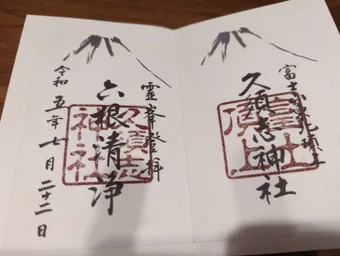 久須志神社
靈峯登拝
六根清浄
久須志神社
令和五年七月二十二日